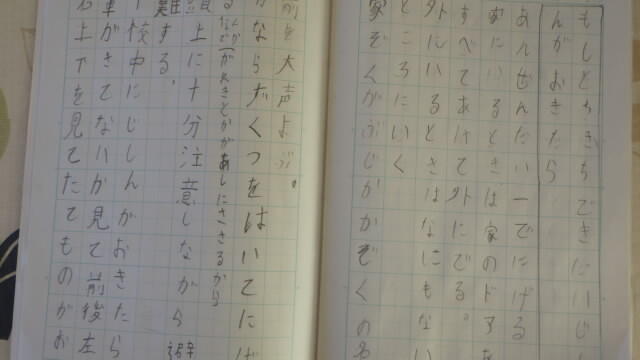 もしとちきちできたいじ
んがおきたら
あんぜんだい一でにげる
にいるときは家のドア
すべてあけて外にでる。
外にいるときはなにもない
ところにいく
家ぞくがぶじかかぞくの名
前を大声よぶ。
かならずくつをはいてにげ
がれきとかがあしにささるから
頭上に十分注意しながら避
難する。
下校中にじしんがおきたら
車がきてないか見て前後左
右上下を見てたてものがお